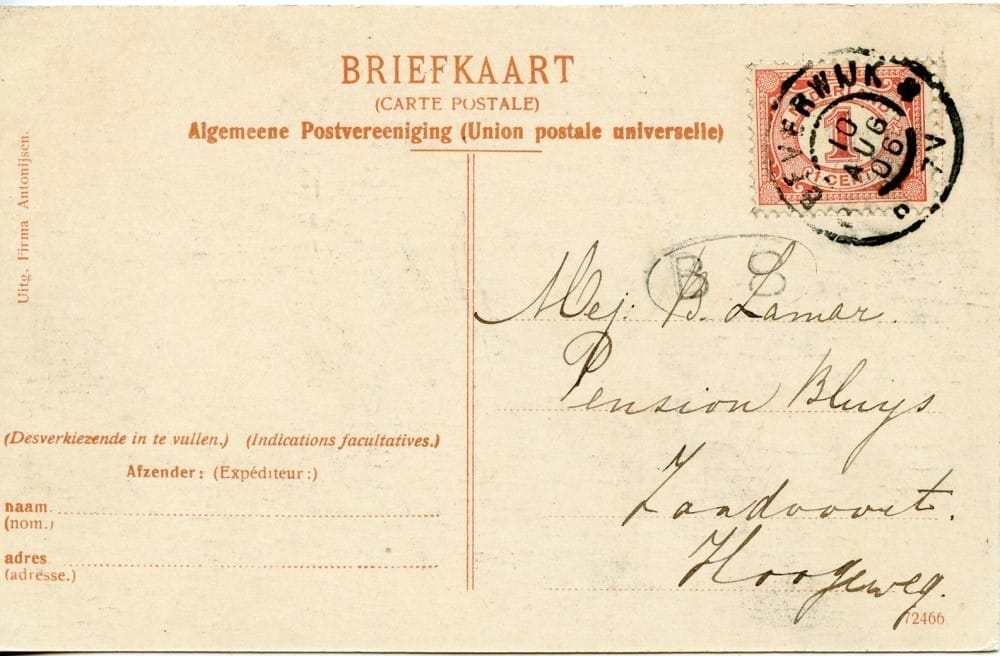 BRIEFKAART
(CARTE POSTALE)
Algemeene Postvereeniging (Union postale universelle)
Uitg. Firma Antonijsen.
BEVERWIJK
10
AUG
06
1
CENT
B
Mej. B. Lamar.
Pension Bluys
Zandvoort.
Hoogeweg.
(Desverkiezende in te vullen.) (Indications facultatives.)
Afzender: (Expéditeur:)
naam
(nom.)
adres
(adresse.)
72466